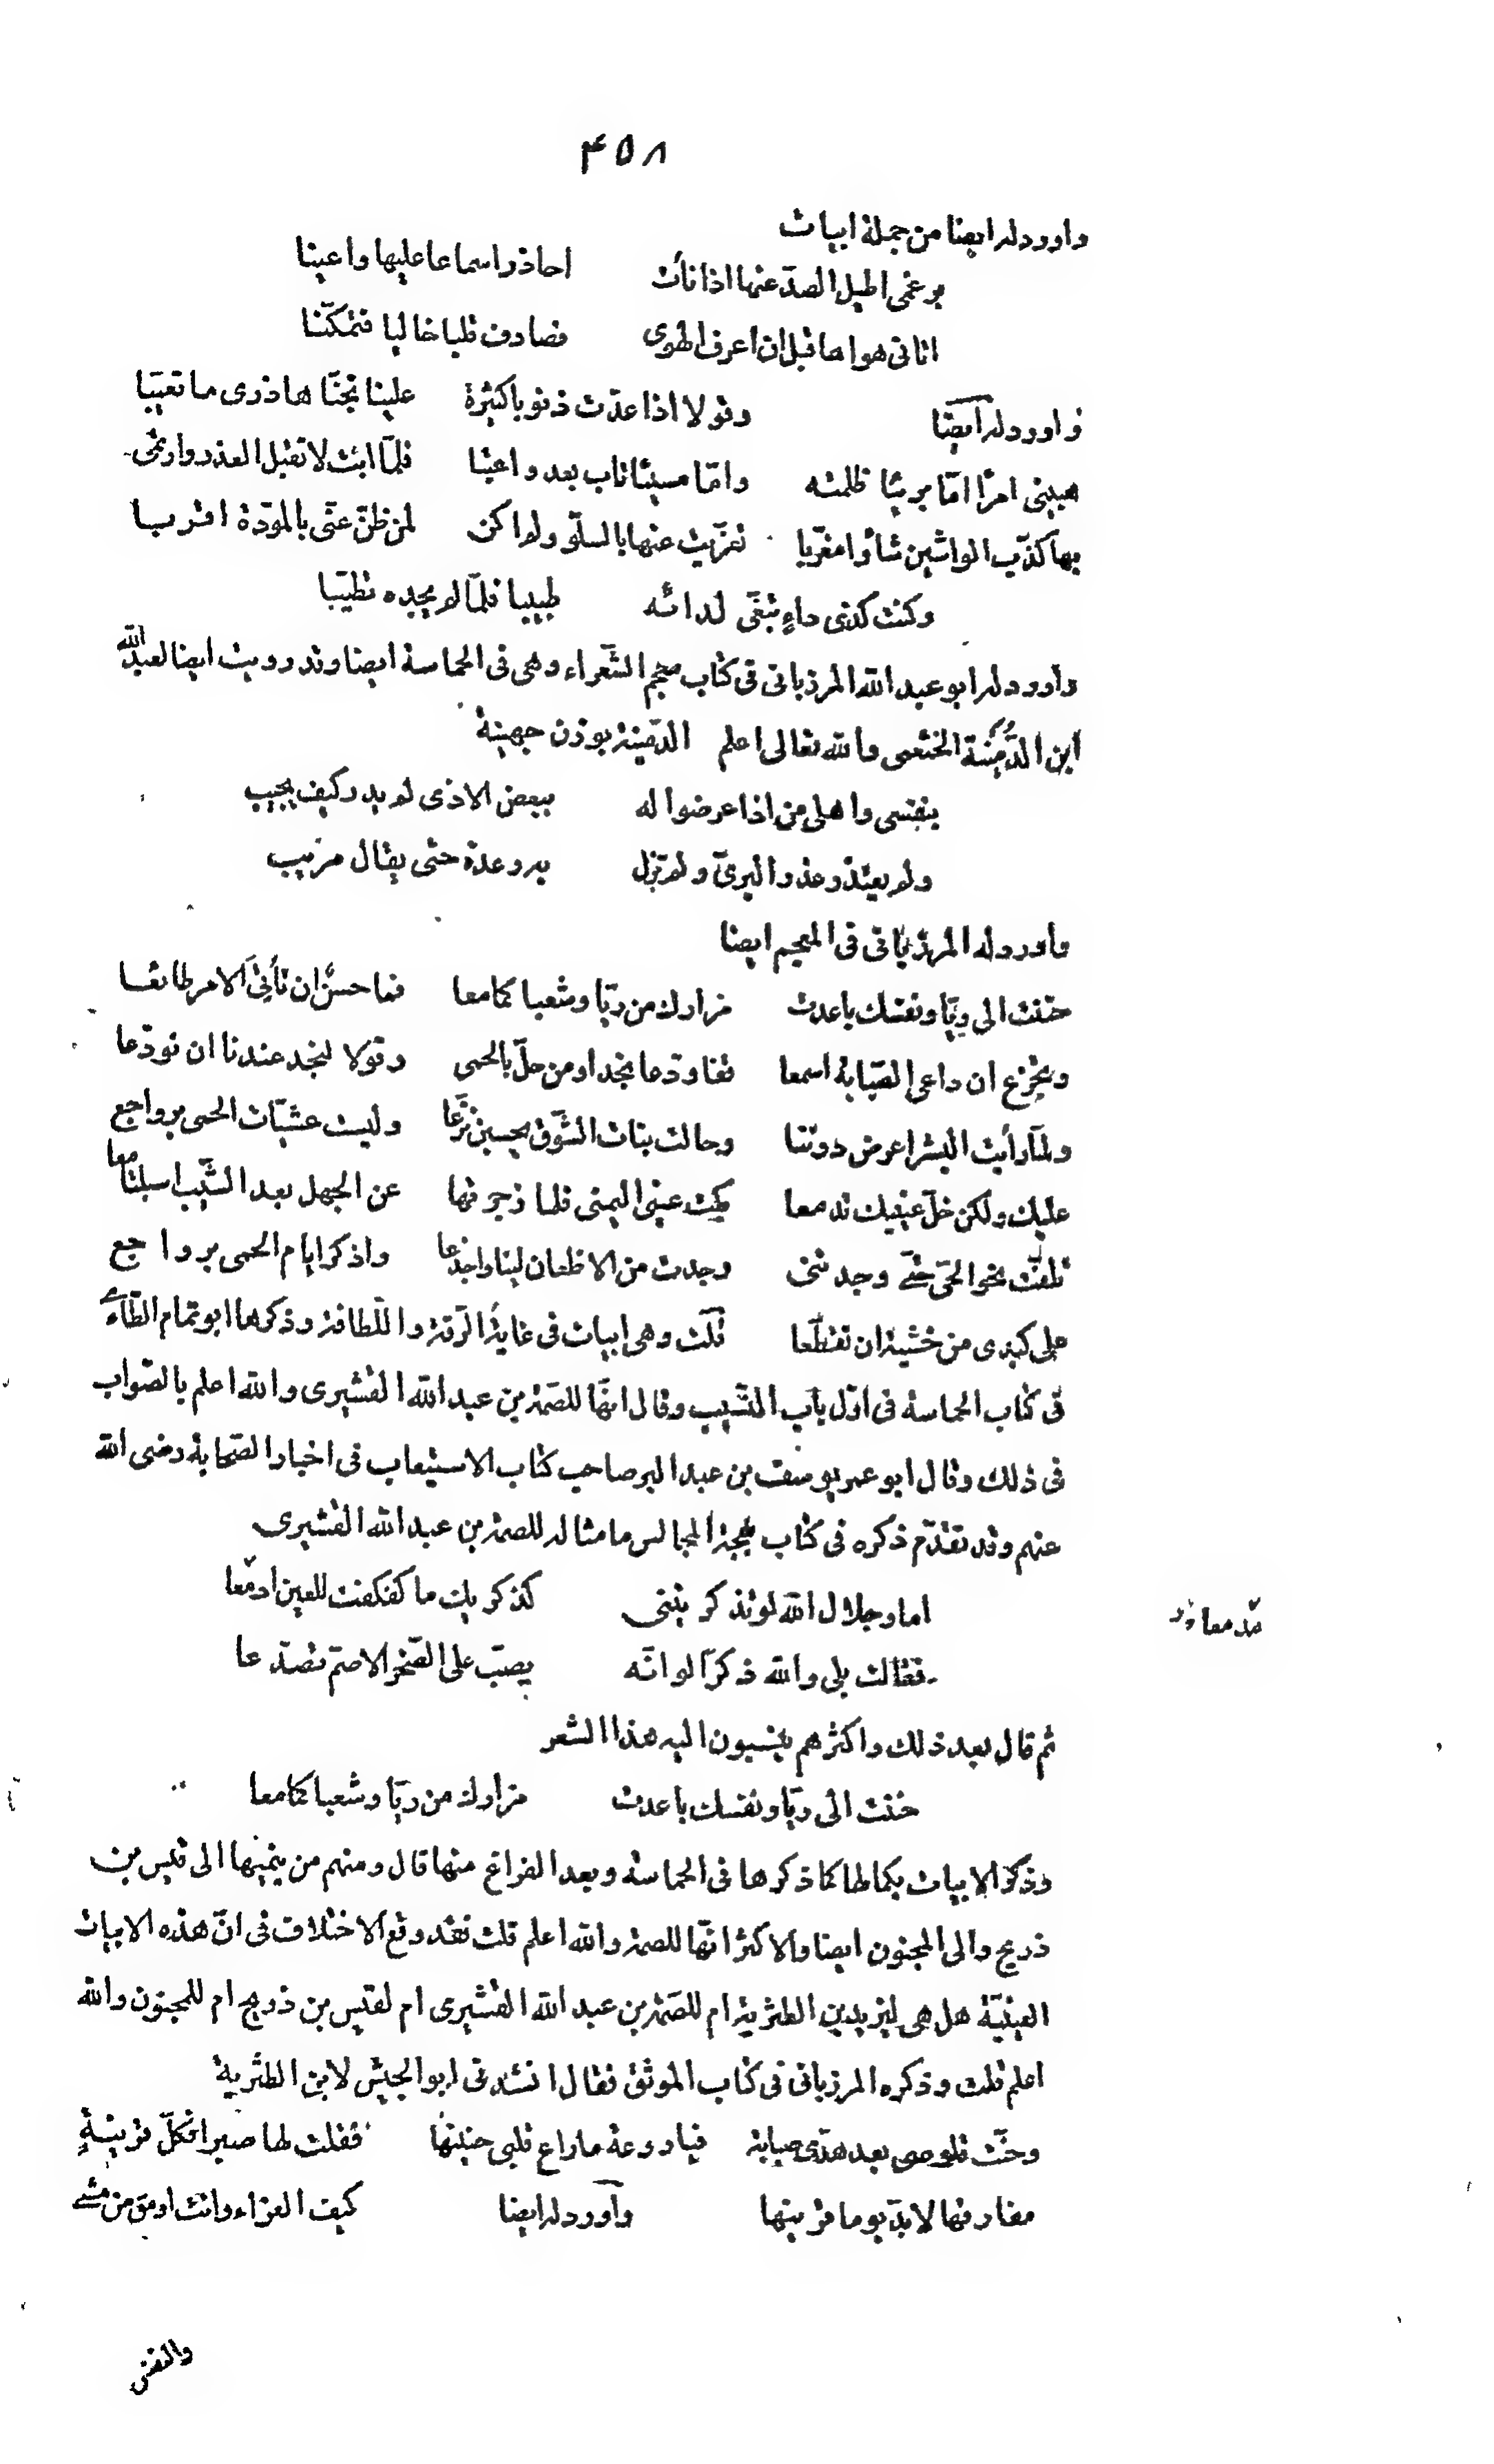 ۴۵۸
واورد له ايضا من جملة ابيات
برغمى اطيل الصدّ عنها اذا نأت احاذر اسماعا عليها واعينا
اتانى هواها قبل ان اعرف الهوى فصادف قلبا خاليا فتمكّنا
واورد له ايضا وقولا اذا عدّت ذنوبا كثيرة علينا تجنّا ها ذرى ما تعيّبا
هبينى امرًا امّا بريئا ظلمته وامّا مسيئا تاب بعد واعتبا فلمّا ابت لا تقبل العذر وارتمى
بها كذب الواشين شأوا مغرّبا تعزّيت عنها بالسلوّ ولم اكن لمن ظنّ عنّى بالمودّة اقربا
وكنت كذى داءٍ تبغّى لدائه طبيبا فلمّا لم يجده تطيّبا
واورد له ابو عبد الله المرزبانى فى كتاب معجم الشّعراء وهى فى الحماسة ايضا وقد رويت ايضا لعبد الله
ابن الدُّمَيْنة الخثعمى والله تعالى اعلم الدمينة بوزن جهينة
بنفسى واهلى من اذا عرضوا له ببعض الاذى لم يدر كيف يجيب
ولم يعتذر عذر البرىّ ولم تزل به روعة حتى يقال مريب
واورد له المرزبانى فى المعجم ايضا
حننت الى ريّا ونفسك باعدت مزارك من ريّا وشعبا كما معا فما حسنٌ ان تأتى الامر طائعا
وتجزع ان داعى الصّبابة اسمعا قفا ودّعا نجدا ومن حلّ بالحمى وقولا لنجد عندنا ان تودّعا
ولمّا رأيت البشر اعرض دوننا وحالت بنات الشّوق يحسبن نزّعا وليست عشيّات الحمى برواجع
عليك ولكن خلّ عينيك تدمعا بكت عينى اليمنى فلما زجرتها عن الجهل بعد الشّيب اسبلتا معا
تلفّتّ نحو الحىّ حتّى وجدتنى وجدت من الاظعان ليتا واخدعا واذكر ايام الحمى برواجع
على كبدى من خشية ان تقطّعا قلت وهى ابيات فى غاية الرّقة واللّطافة وذكرها ابو تمام الطّائى
فى كتاب الحماسة فى اوّل باب النّسيب وقال انّها للصمّة بن عبد الله القشيرى والله اعلم بالصّواب
فى ذلك وقال ابو عمر يوسف بن عبد البر صاحب كتاب الاستيعاب فى اخبار الصّحابة رضى الله
عنهم وقد تقدّم ذكره فى كتاب بهجة المجالس ما مثاله للصمة بن عبد الله القشيرى
اما وجلال الله لو تذكريننى كذكريك ما كفكفت للعين ادمعا
فقالت بلى والله ذكرًا لو انّه يصبّ على الصّخر الاصمّ تصدّعا
ثم قال بعد ذلك واكثرهم ينسبون اليه هذا الشعر
حننت الى ريّا ونفسك باعدت مزارك من ريّا وشعبا كما معا
وذكر الابيات بكمالها كما ذكرها فى الحماسة وبعد الفراغ منها قال ومنهم من ينسبها الى قيس بن
ذريح والى المجنون ايضا والاكثر انّها للصمة والله اعلم قلت فقد وقع الاختلاف فى انّ هذه الابيات
العينيّة هل هى ليزيد بن الطثرية ام للصمّة بن عبد الله القشيرى ام لقيس بن ذريح ام للمجنون والله
اعلم قلت وذكره المرزبانى فى كتاب الموثق فقال انشدنى ابو الجيش لابن الطثرية
وحنّت قلوصى بعد هدّى صبابة فيا روعة ما راع قلبى حنينها فقلت لها صبرا فكلّ قرينةٍ
مفارقها لا بدّ يوما قرينها واورد له ايضا كيف العزاء وانت اومق من مشى
والنفس